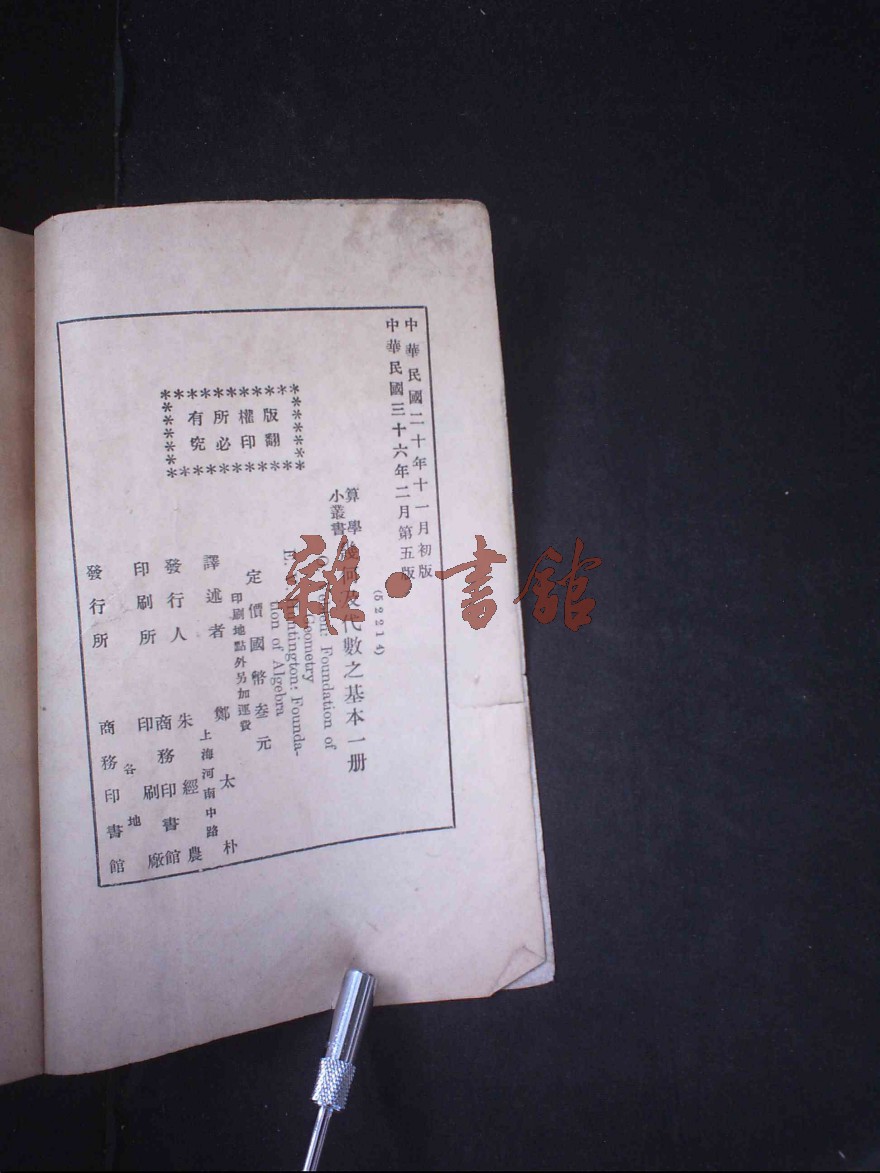 中華民國二十年十一月初版
中華民國三十六年二月第五版
(52214)
算學小叢書
幾何及代數之基本一册
Foundation of
Geometry
E. V. Huntington: Founda-
tion of Algebra
定價國幣叁元
印刷地點外另加運費
版權所有
翻印必究
譯述者 鄭太朴
上海河南中路
發行人 朱經農
印刷所 商務印書館
印刷廠
發行所 各地
商務印書館
雜·書館